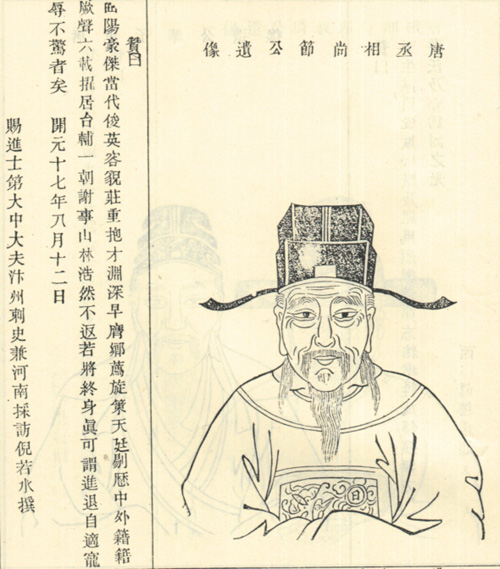 唐丞相尚節公遺像
贊曰
陽豪傑當代俊英容貌莊重抱才淵深早膺鄉薦旋策天廷剔歷中外藉籍
厥聲六載擢居台輔一朝謝事山林浩然不返若將終身眞可謂進退自適寵
辱不驚者矣 開元十七年八月十二日
賜進士第大中大夫汴州刺史兼河南採訪倪若水撰